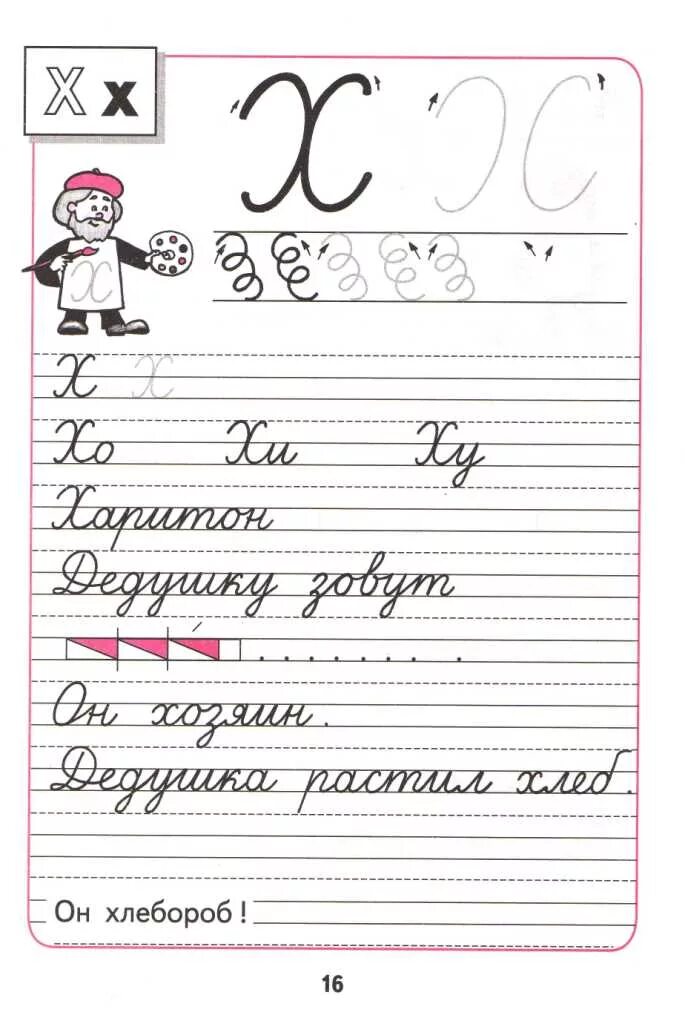 Х х
Х Х
Х
Х Х
Хо Хи Ху
Харитон
Дедушку зовут
Он хозяин.
Дедушка растил хлеб.
Он хлебороб!
16